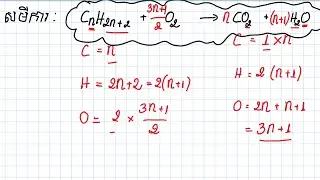 សមីការ : CnH2n+2 + 3n+1/2 O2 → n CO2 + (n+1) H2O
C = n
C = 1 × n
H = 2n+2 = 2(n+1)
H = 2 (n+1)
O = 2 × 3n+1/2
O = 2n + n+1
= 3n+1